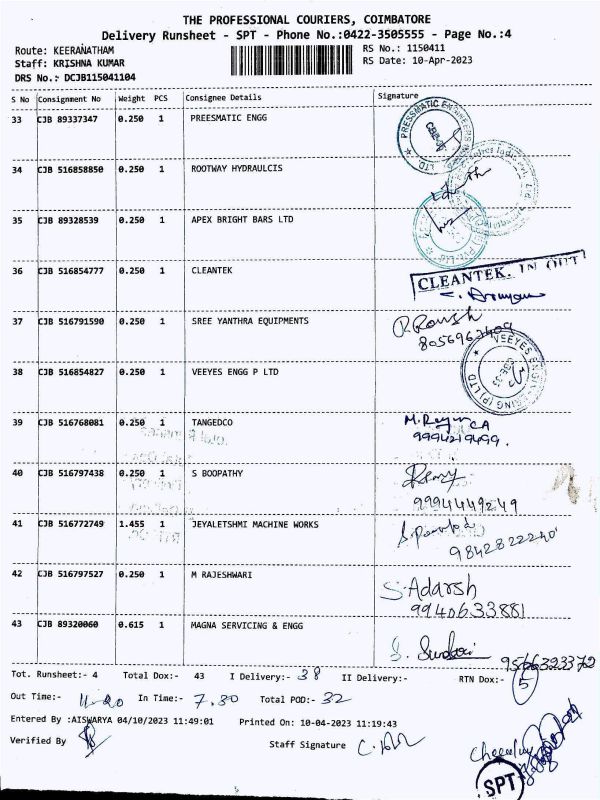 THE PROFESSIONAL COURIERS, COIMBATORE
Delivery Runsheet - SPT - Phone No.:0422-3505555 - Page No.:4
Route: KEERANATHAM RS No.: 1150411
Staff: KRISHNA KUMAR RS Date: 10-Apr-2023
DRS No.: DCJB115041104
S No Consignment No Weight PCS Consignee Details Signature
33 CJB 89337347 0.250 1 PREESMATIC ENGG
34 CJB 516858850 0.250 1 ROOTWAY HYDRAULCIS
35 CJB 89328539 0.250 1 APEX BRIGHT BARS LTD
36 CJB 516854777 0.250 1 CLEANTEK CLEANTEK.
37 CJB 516791590 0.250 1 SREE YANTHRA EQUIPMENTS
38 CJB 516854827 0.250 1 VEEYES ENGG P LTD
39 CJB 516768081 0.250 1 TANGEDCO
9994219499.
40 CJB 516797438 0.250 1 S BOOPATHY
9994449249
41 CJB 516772749 1.455 1 JEYALETSHMI MACHINE WORKS
9842822240
42 CJB 516797527 0.250 1 M RAJESHWARI S. Adarsh
9940633881
43 CJB 89320060 0.615 1 MAGNA SERVICING & ENGG
9566323372
Tot. Runsheet:- 4 Total Dox:- 43 I Delivery:- 38 II Delivery:- RTN Dox:- 5
Out Time:- 11.20 In Time:- 7.30 Total POD:- 32
Entered By :AISWARYA 04/10/2023 11:49:01 Printed On: 10-04-2023 11:19:43
Verified By Staff Signature
SPT